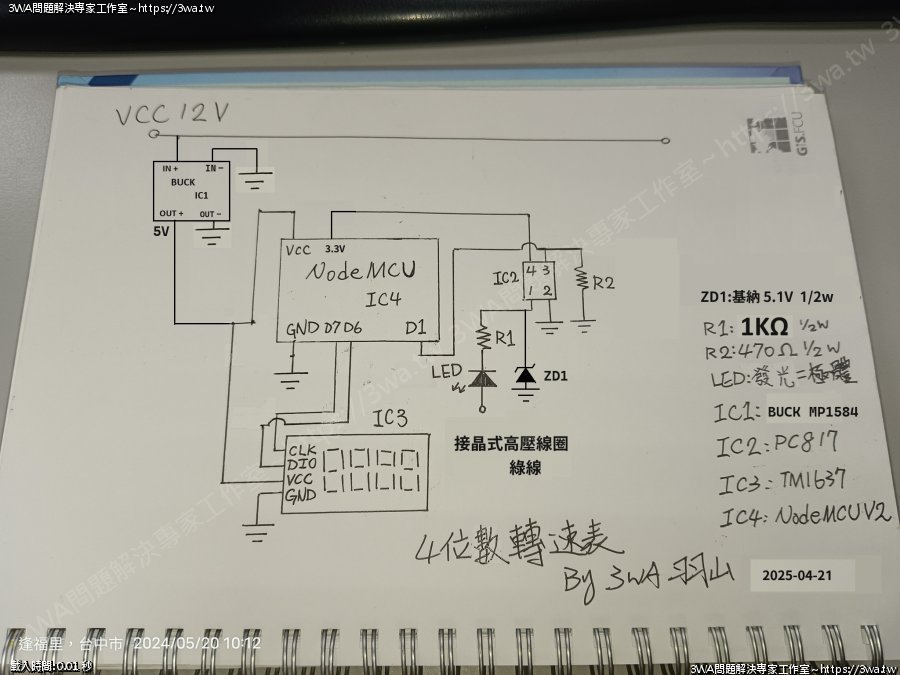 3WA問題解決專家工作室~https://3wa.tw
VCC 12V
GIS.FCU
IN + IN −
BUCK
IC1
OUT + OUT −
5V
VCC 3.3V
NodeMCU
IC4
GND D7 D6 D1
IC2
4 3
1 2
R2
R1
LED
ZD1
接晶式高壓線圈
綠線
IC3
CLK
DIO
VCC
GND
ZD1:基納 5.1V 1/2w
R1: 1KΩ 1/2W
R2:470Ω 1/2W
LED:發光二極體
IC1: BUCK MP1584
IC2: PC817
IC3: TM1637
IC4: NodeMCU V2
4位數轉速表
By 3WA 羽山
2025-04-21
3WA問題解決專家工作室~https://3wa.tw
逢福里，台中市 2024/05/20 10:12
載入時間: 0.01 秒
3WA問題解決專家工作室~https://3wa.tw